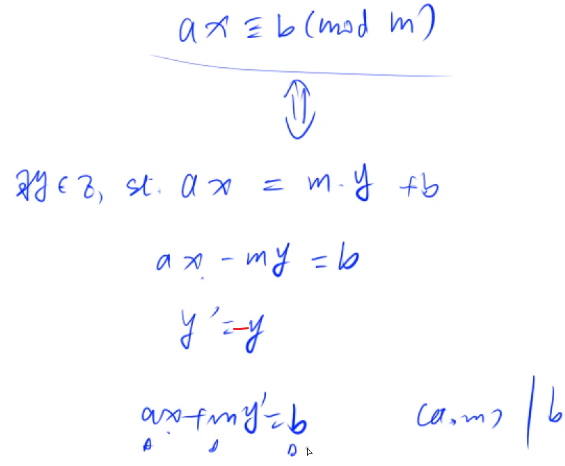 ax ≡ b (mod m)
⇕
∃y ∈ Z, st. ax = m·y + b
ax - my = b
y' = -y
ax + my' = b (a, m) | b